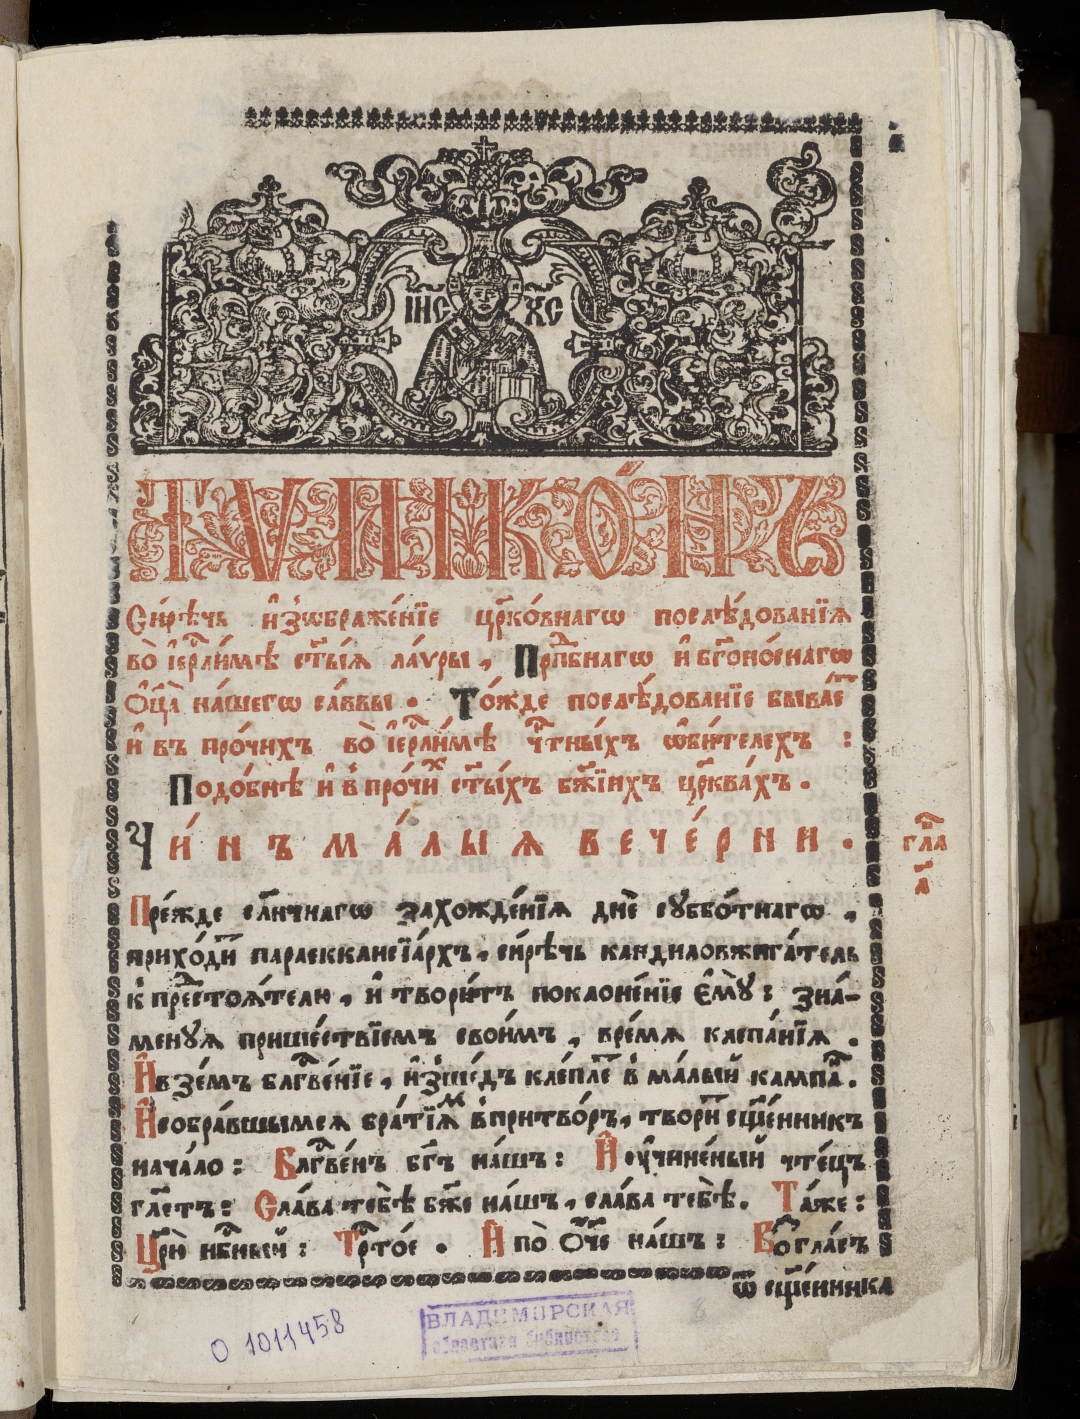 а҃
І҆И҃С Х҃С
ТѴПІКО́НЪ
Си́рѣчь и҆зѡбраже́нїе цр҃ко́внагѡ послѣ́дованїѧ
во̀ і҆ерⷭ҇ли́мѣ ст҃ы́ѧ ла́ѵры, Прпⷣбнагѡ и҆ бг҃оно́снагѡ
Ѻ҆ц҃а̀ на́шегѡ са́ввы. То́жде послѣ́дованїе быва́еⷮ
и҆ въ про́чихъ во̀ і҆ерⷭ҇ли́мѣ чⷭ҇тны́хъ ѡ҆би́телехъ:
Подо́бнѣ и҆ в̾ про́чиⷯ ст҃ы́хъ бж҃їихъ цр҃ква́хъ.
Чи́нъ ма́лыѧ вече́рни.
глⷡ҇а
а҃
Пре́жде со́лн҃чнагѡ захожде́нїѧ днѐ сꙋббо́тнагѡ,
прихо́диⷮ параекклисїа́рхъ, си́рѣчь кандиловжига́тель
к̾ предⷭ҇тоѧ́телю, и҆ твори́тъ поклоне́нїе є҆мꙋ̀: зна́-
менꙋѧ прише́ствїемъ свои́мъ, вре́мѧ клепа́нїѧ.
И҆ взе́мъ блгⷭ҇ве́нїе, и҆зше́дъ кле́плеⷮ в̾ ма́лый кампа́нъ.
И҆ собра́вшымсѧ бра́тїѧⷨ в̾ притво́ръ, твори́ⷮ сщ҃е́нникъ
нача́ло: Блгⷭ҇ве́нъ бг҃ъ на́шъ: И҆ ᲂу҆чине́ный чте́цъ
гл҃етъ: Сла́ва тебѣ̀ бж҃е на́шъ, сла́ва тебѣ̀. Та́же:
Цр҃ю̀ нбⷭ҇ный: Трⷭ҇то́е. И҆ по̀ Ѻ҆́ч҃е на́шъ: Во́згласъ
ѿ сщ҃е́нника
О 1011458
ВЛАДИМИРСКАЯ
областная библиотека